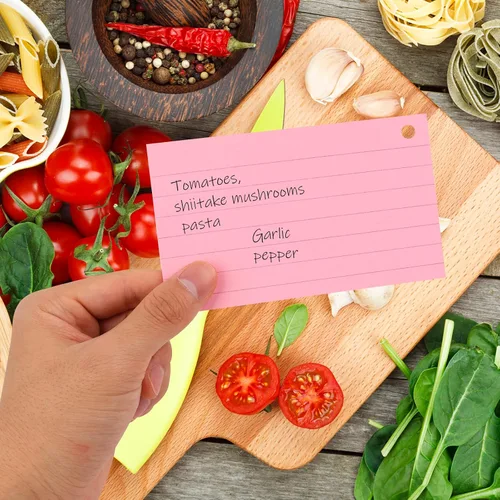 Tomatoes,
shiitake mushrooms
pasta
Garlic
pepper